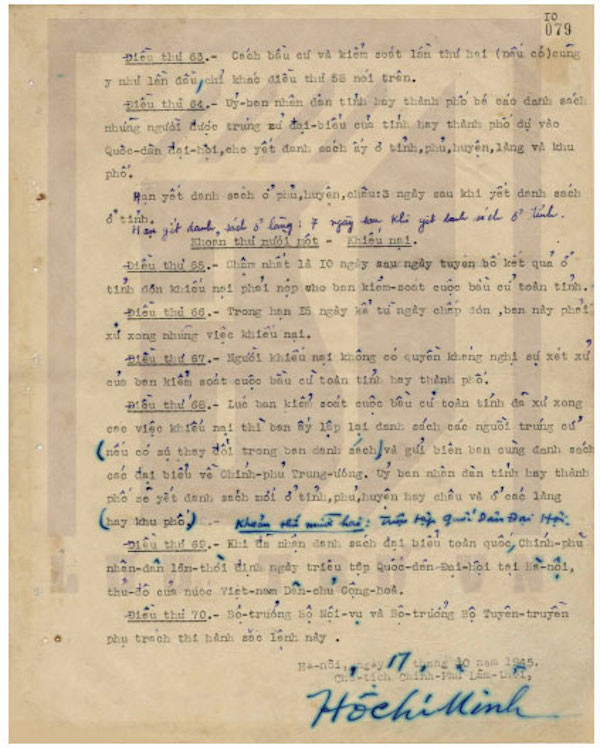 10
079
Điều thứ 63.- Cách bầu cử và kiểm soát lần thứ hai (nếu có)cũng
y như lần đầu,chỉ khác điều thứ 58 nói trên.
Điều thứ 64.- Uỷ-ban nhân dân tỉnh hay thành phố bá cáo danh sách
những người được trúng xử đại-biểu của tỉnh hay thành phố dự vào
Quốc-dân đại-hội,cho yết danh sách ấy ở tỉnh,phủ,huyện,làng và khu
phố.
Hạn yết danh sách ở phủ,huyện,châu:3 ngày sau khi yết danh sách
ở tỉnh.
Hạn yết danh sách ở làng: 7 ngày sau khi yết danh sách ở tỉnh.
Khoản thứ mười một - Khiếu nại.
Điều thứ 65.- Chậm nhất là 10 ngày sau ngày tuyên bố kết quả ở
tỉnh đơn khiếu nại phải nộp cho ban kiểm-soát cuộc bầu cử toàn tỉnh.
Điều thứ 66.- Trong hạn 15 ngày kể từ ngày chấp đơn ,ban này phải
xử xong những việc khiếu nại.
Điều thứ 67.- Người khiếu nại không có quyền kháng nghị sự xét xử
của ban kiểm soát cuộc bầu cử toàn tỉnh hay thành phố.
Điều thứ 68.- Lúc ban kiểm soát cuộc bầu cử toàn tỉnh đã xử xong
các việc khiếu nại thì ban ấy lập lại danh sách các người trúng cử
(nếu có sự thay đổi trong bản danh sách)và gửi biên bản cùng danh sách
các đại biểu về Chính-phủ Trung-ương. Uỷ ban nhân dân tỉnh hay thành
phố sẽ yết danh sách mới ở tỉnh,phủ,huyện hay châu và ở các làng
(hay khu phố).- Khoản thứ mười hai: Triệu tập Quốc Dân Đại Hội.
Điều thứ 69.- Khi đã nhận danh sách đại biểu toàn quốc,Chính-phủ
nhân-dân lâm-thời định ngày triệu tập Quốc-dân Đại-hội tại Hà-nội,
thủ-đô của nước Việt-nam Dân-chủ Cộng-hoà.
Điều thứ 70.- Bộ-trưởng Bộ Nội-vụ và Bộ-trưởng Bộ Tuyên-truyền
phụ trách thi hành sắc lệnh này .
Hà-nội, ngày 17 tháng 10 năm 1945.
Chủ-tịch Chính-Phủ Lâm-thời,
Hồ Chí Minh